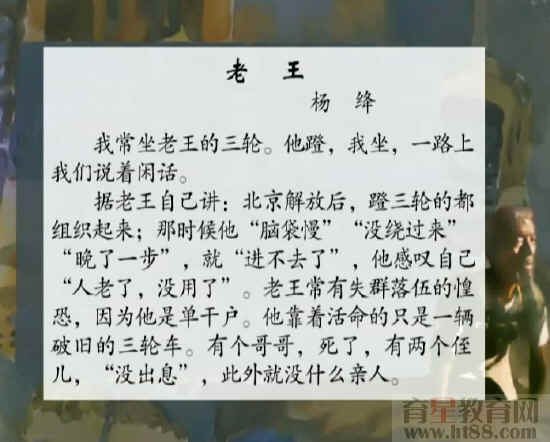 老 王
杨 绛
我常坐老王的三轮。他蹬，我坐，一路上
我们说着闲话。
据老王自己讲：北京解放后，蹬三轮的都
组织起来；那时候他“脑袋慢”“没绕过来”
“晚了一步”，就“进不去了”，他感叹自己
“人老了，没用了”。老王常有失群落伍的惶
恐，因为他是单干户。他靠着活命的只是一辆
破旧的三轮车。有个哥哥，死了，有两个侄
儿，“没出息”，此外就没什么亲人。
育星教育网
www.ht88.com